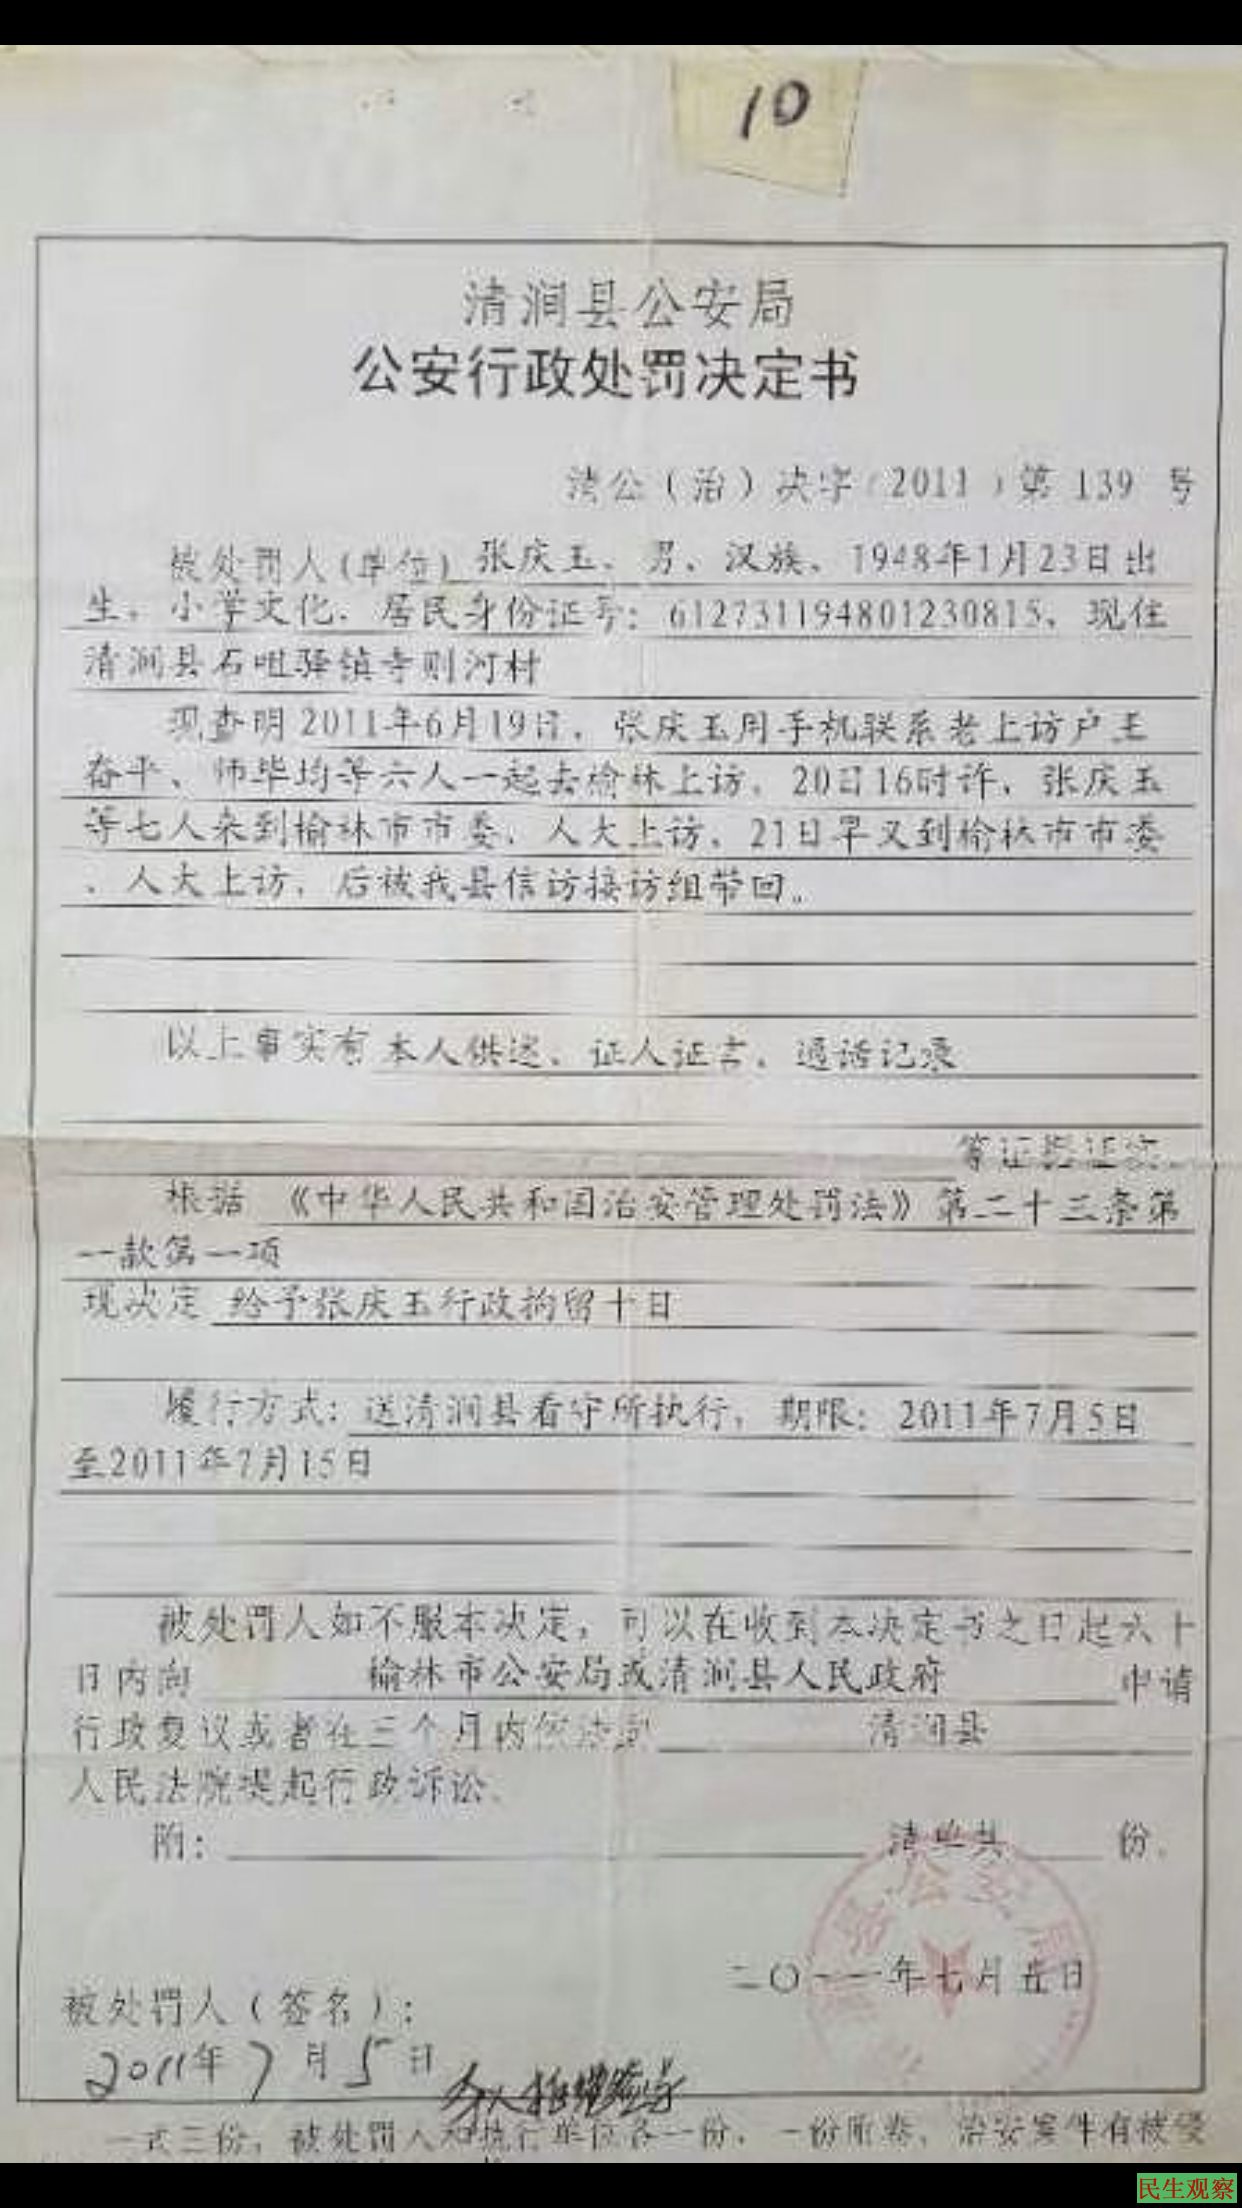 10
清涧县公安局
公安行政处罚决定书
清公（治）决字（2011）第 139 号
被处罚人(单位) 张庆玉、男、汉族、1948年1月23日出
生，小学文化、居民身份证号：612731194801230815、现住
清涧县石咀驿镇寺则河村
现查明2011年6月19日，张庆玉用手机联系老上访户王
奋平、师毕均等六人一起去榆林上访，20日16时许，张庆玉
等七人来到榆林市市委、人大上访，21日早又到榆林市市委
、人大上访，后被我县信访接访组带回。
以上事实有 本人供述、证人证言、通话记录
等证据证实。
根据 《中华人民共和国治安管理处罚法》第二十三条第
一款第一项
现决定 给予张庆玉行政拘留十日
履行方式：送清涧县看守所执行，期限：2011年7月5日
至2011年7月15日
被处罚人如不服本决定，可以在收到本决定书之日起六十
日内向 榆林市公安局或清涧县人民政府 申请
行政复议或者在三个月内依法到 清涧县
人民法院提起行政诉讼。
附： 清单共 份。
二〇一一年七月五日
被处罚人（签名）：
2011年7月5日
本人拒绝签字
一式三份，被处罚人和执行单位各一份，一份附卷，治安案件有被侵
民生观察